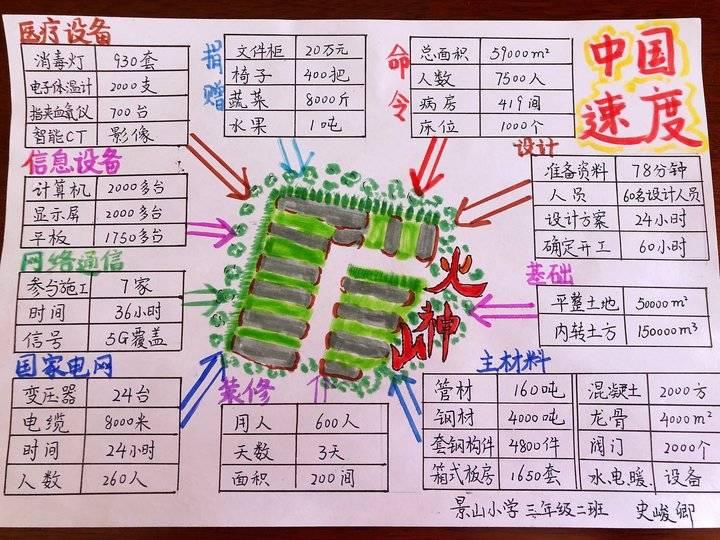 医疗设备
消毒灯 930套
电子体温计 2000支
指夹血氧仪 700台
智能CT 影像
捐赠
文件柜 20万元
椅子 400把
蔬菜 8000斤
水果 10吨
命令
总面积 59000m²
人数 7500人
病房 419间
床位 1000个
中国速度
信息设备
计算机 2000多台
显示屏 2000多台
平板 1750多台
设计
准备资料 78分钟
人员 60名设计人员
设计方案 24小时
确定开工 60小时
网络通信
参与施工 7家
时间 36小时
信号 5G覆盖
火神山
基础
平整土地 50000m²
内转土方 150000m³
国家电网
变压器 24台
电缆 8000米
时间 24小时
人数 260人
装修
用人 600人
天数 3天
面积 200间
主材料
管材 160吨 混凝土 2000方
钢材 4000吨 龙骨 4000m²
套钢构件 4800件 阀门 2000个
箱式板房 1650套 水、电、暖、设备
景山小学 三年级二班 史峻卿